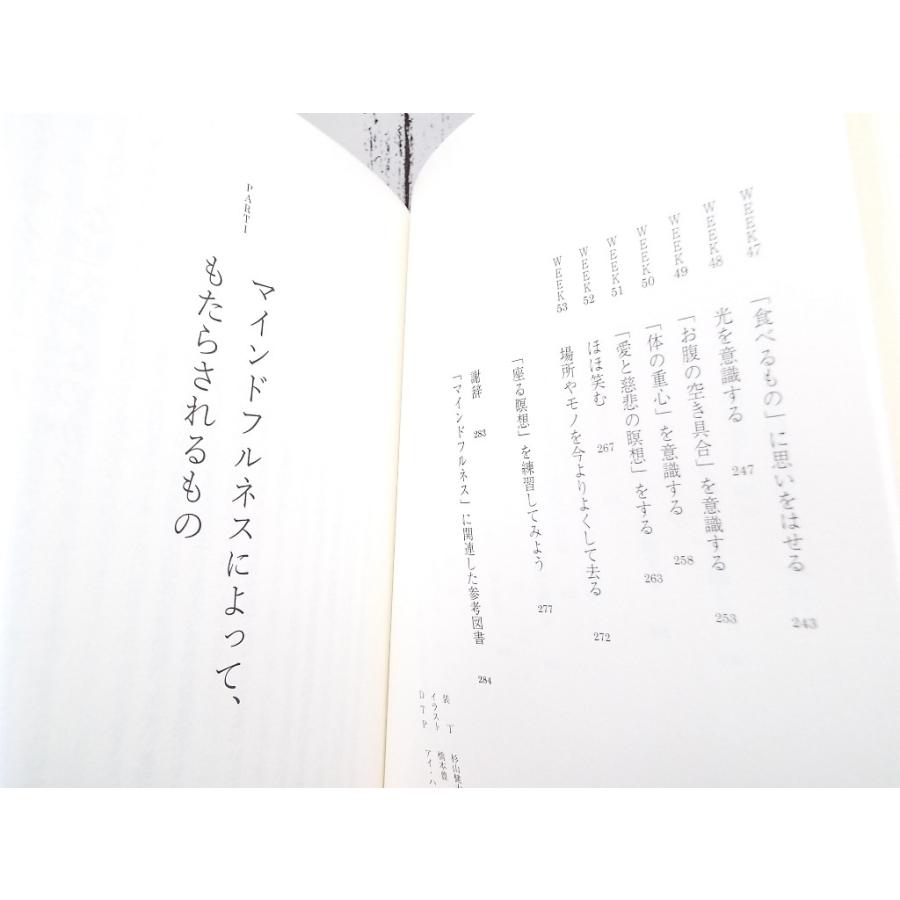 WEEK 47 「食べるもの」に思いをはせる 243
WEEK 48 光を意識する 247
WEEK 49 「お腹の空き具合」を意識する 253
WEEK 50 「体の重心」を意識する 258
WEEK 51 「愛と慈悲の瞑想」をする 263
WEEK 52 ほほ笑む 267
WEEK 53 場所やモノを今よりよくして去る 272
「座る瞑想」を練習してみよう 277
謝辞 283
「マインドフルネス」に関連した参考図書 284
装丁 杉山健
イラスト 橋本豊
DTP アイ・ハ
PART1
マインドフルネスによって、
もたらされるもの